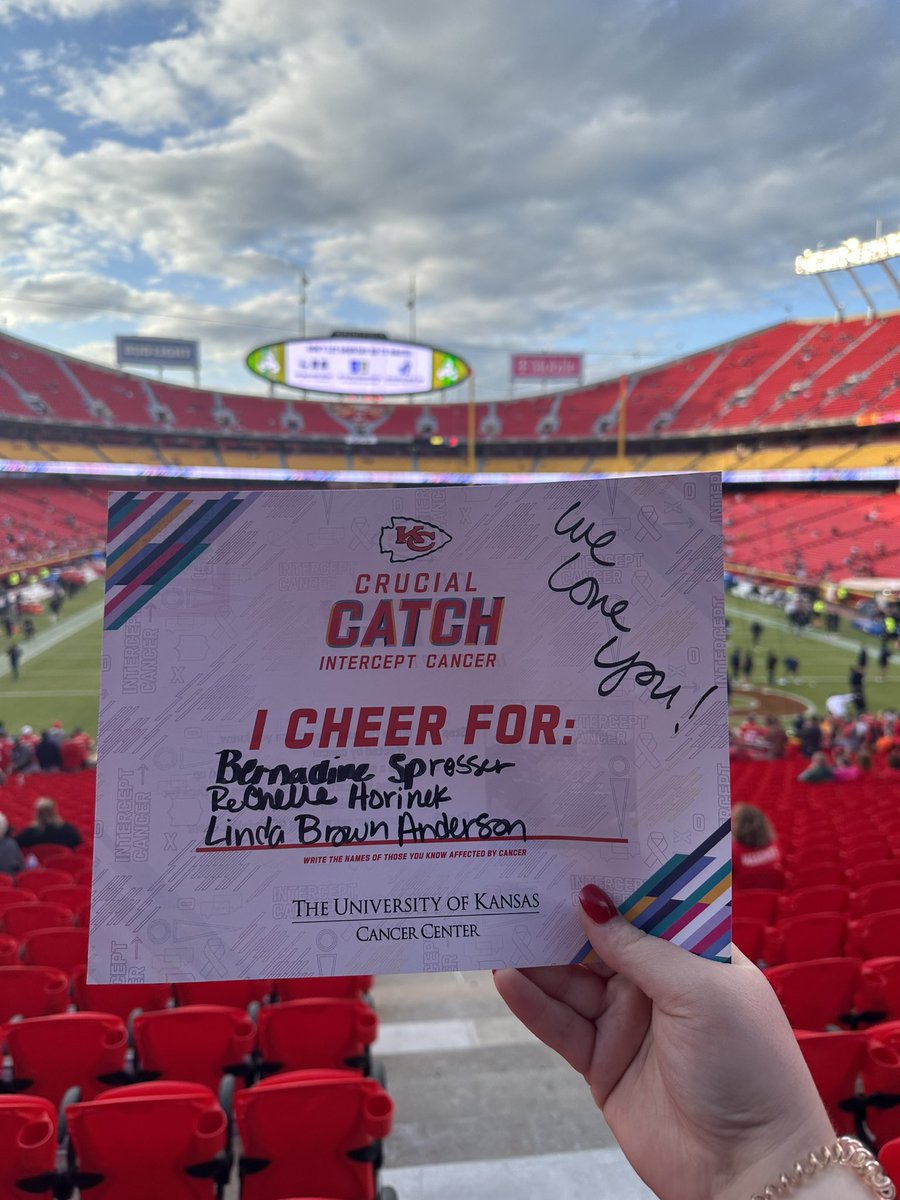 BUD LIGHT
KC
CRUCIAL
CATCH
INTERCEPT CANCER
We
Love
you!!
I CHEER FOR:
Bernadine Sprosser
ReChelle Horinek
Linda Brown Anderson
WRITE THE NAMES OF THOSE YOU KNOW AFFECTED BY CANCER
THE UNIVERSITY OF KANSAS
CANCER CENTER
INTERCEPT
CANCER